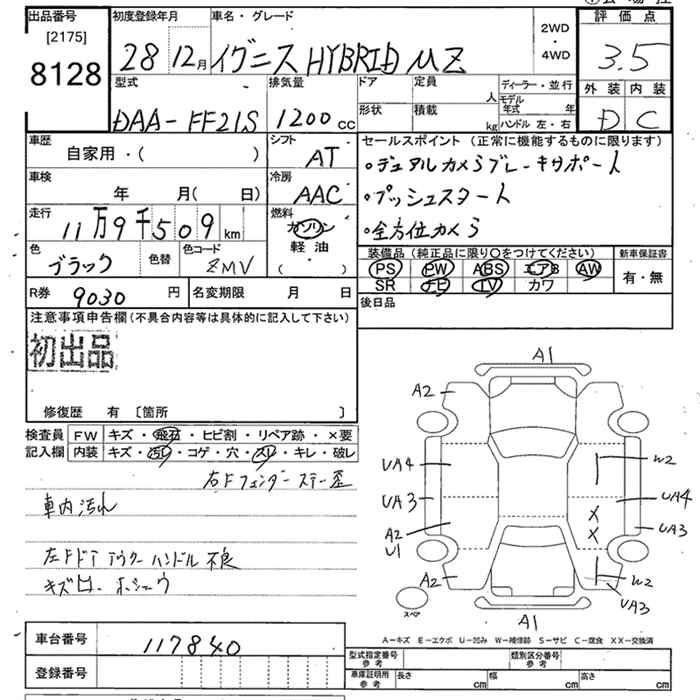 出品番号
[2175]
8128
初度登録年月
28 12月
車名・グレード
イグニス HYBRID MZ
2WD
・
4WD
評価点
3.5
外装 内装
D C
型式
DAA-FF21S
排気量
1200 cc
ドア
形状
定員 人
積載 kg
ディーラー・並行
モデル年式 年
ハンドル 左・右
車歴
自家用・( )
シフト
AT
セールスポイント (正常に機能するものに限ります)
・デュアルカメラブレーキサポート
・プッシュスタート
・全方位カメラ
車検
年 月(日)
冷房
AAC
走行
11万9千509km
燃料
ガソリン
軽油
・( )
色
ブラック
色替
色コード
ZMV
装備品 (純正品に限り○をつけてください)
PS PW ABS エアB AW
SR ナビ TV カワ
新車保証書
有・無
R券 9030円
名変期限 月 日
後日品
注意事項申告欄(不具合内容等は具体的に記入して下さい)
初出品
修復歴 有 〔箇所 〕
検査員
記入欄
FW キズ・飛石・ヒビ割・リペア跡・×要
内装 キズ・汚れ・コゲ・穴・スレ・キレ・破レ
右Fフェンダーステー歪
車内汚れ
左Fドアアウターハンドル不良
キズ
A1
A2
UA4
W2
UA3
UA4
A2
UA3
U1
A2
W2
UA3
A1
スペア
A-キズ E-エクボ U-凹み W-補修跡 S-サビ C-腐食 XX-交換済
車台番号
117840
登録番号
型式指定番号
参考
類別区分番号
参考
車庫証明用
参考
長さ cm
幅 cm
高さ cm